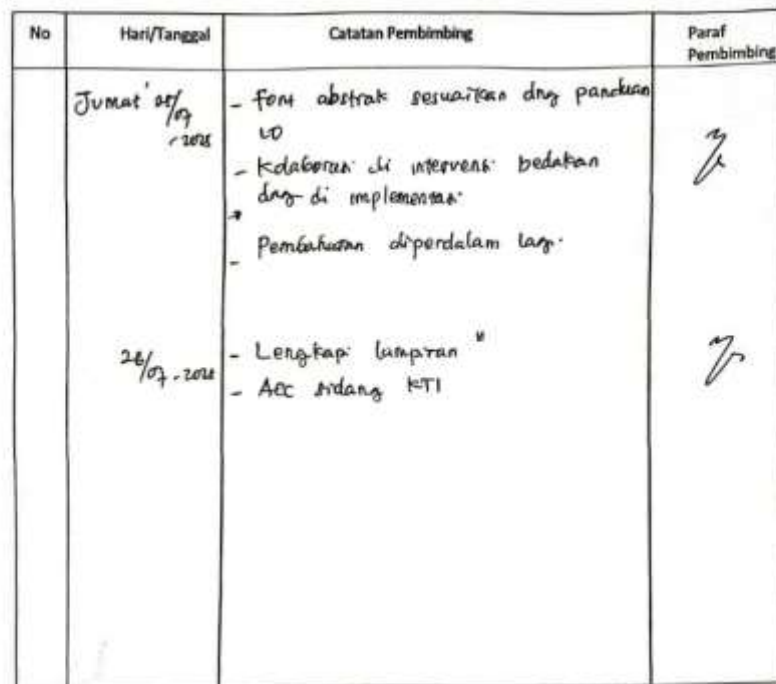 No Hari/Tanggal Catatan Pembimbing Paraf Pembimbing
Jumat
- font abstrak sesuaikan dng panduan
- Kolaborasi di intervensi bedakan
dng di implementasi
- Pembahasan diperdalam lagi
/07 - - Lengkapi lampiran
- Acc sidang KTI